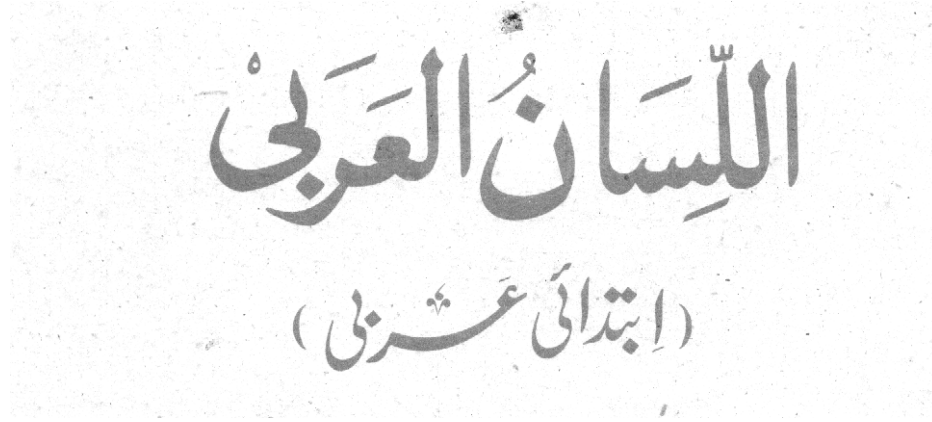 اللِّسَانُ العَرَبیْ
(اِبتدائی عَربی)